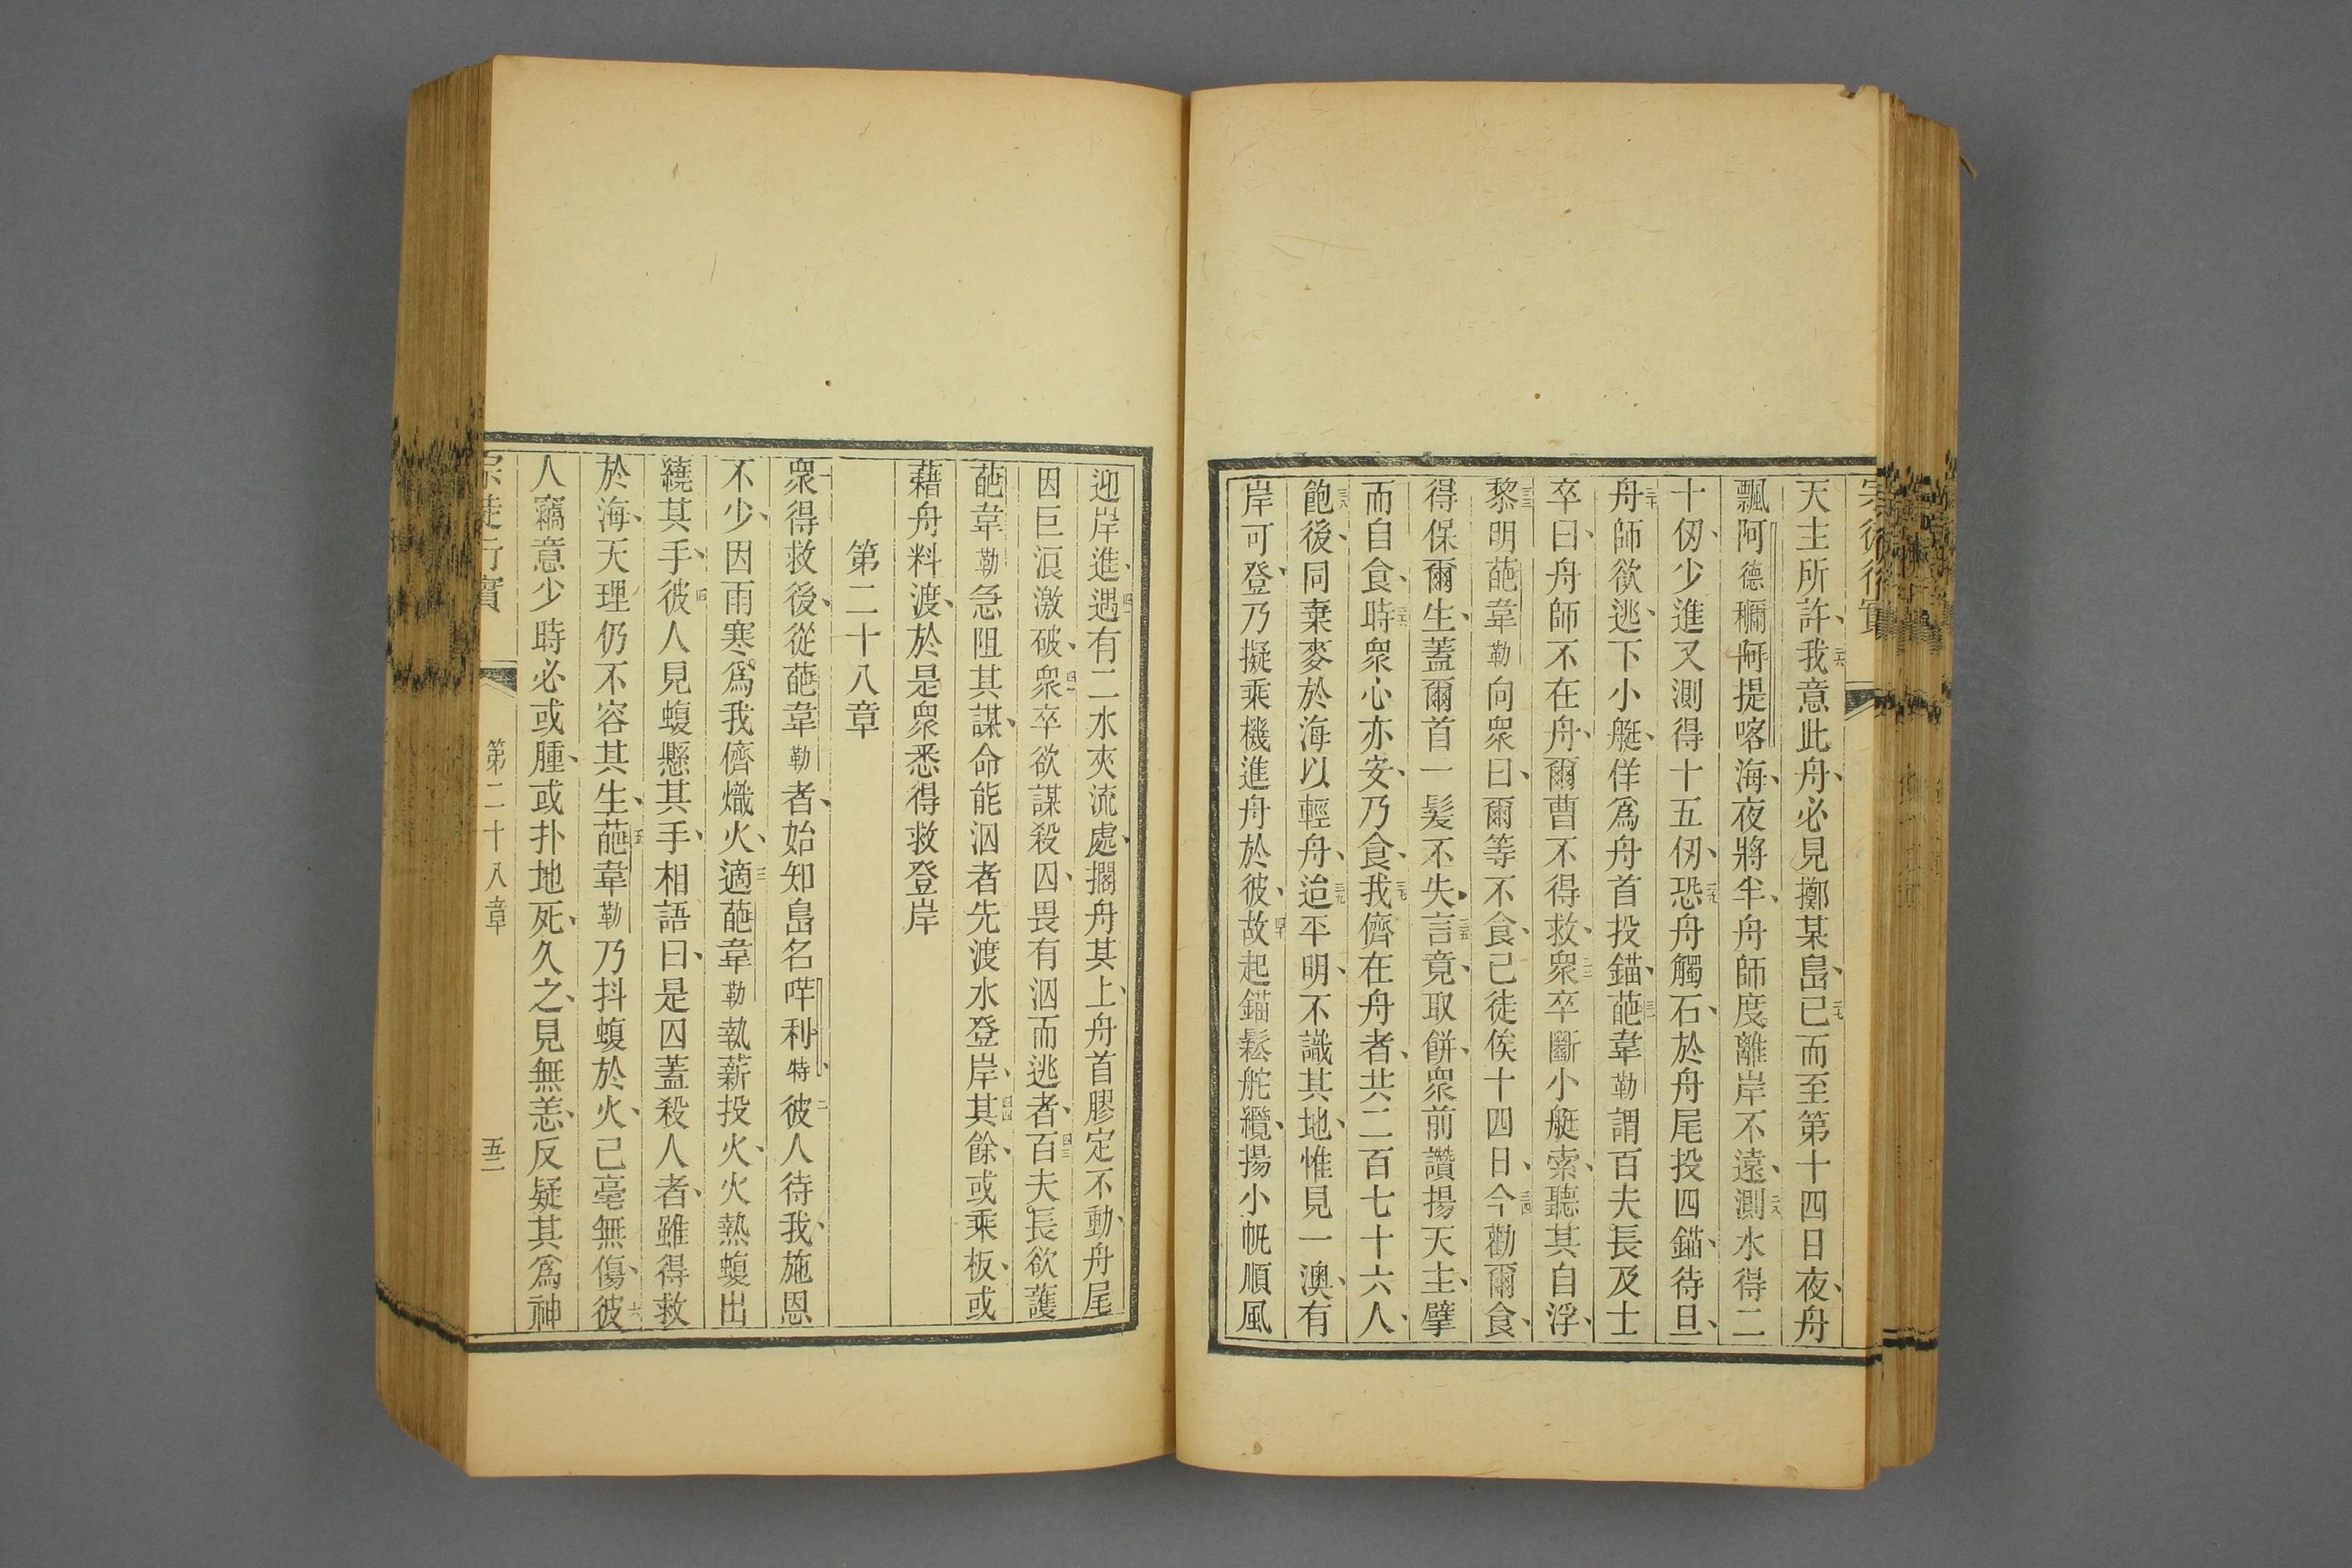 宗徒行實
天主所許、我意此舟、必見擲某島、二七已而至第十四日夜、舟
飄阿德穪阿提喀海、夜將半、舟師度離岸不遠、二八測水得二
十仞、少進又測得十五仞、二九恐舟觸石、於舟尾投四錨、待旦、
三十舟師欲逃、下小艇、佯爲舟首投錨、三一葩韋勒謂百夫長及士
卒曰、舟師不在舟、爾曹不得救、三二衆卒斷小艇索、聽其自浮、
三三黎明葩韋勒向衆曰、爾等不食、已徒俟十四日、三四今勸爾食、
得保爾生、蓋爾首一髮不失、三五言竟、取餅、衆前讚揚天主、擘
而自食、三六時衆心亦安、乃食、三七我儕在舟者、共二百七十六人、
三八飽後、同棄麥於海以輕舟、三九迨平明、不識其地、惟見一澳、有
岸可登、乃擬乘機進舟於彼、四十故起錨鬆舵纜、揚小帆順風
迎岸進、四一遇有二水夾流處、擱舟其上、舟首膠定不動、舟尾
因巨浪激破、四二衆卒欲謀殺囚、畏有泅而逃者、四三百夫長欲護
葩韋勒急阻其謀、命能泅者先渡水登岸、四四其餘、或乘板、或
藉舟料渡、於是衆悉得救登岸
第二十八章
一衆得救後、從葩韋勒者、始知島名哶利特、二彼人待我、施恩
不少、因雨寒爲我儕熾火、三適葩韋勒執薪投火、火熱蝮出
繞其手、四彼人見蝮懸其手、相語曰、是囚蓋殺人者、雖得救
於海、天理仍不容其生、五葩韋勒乃抖蝮於火、己毫無傷、六彼
人竊意少時必或腫、或扑地死、久之、見無恙、反疑其爲神
宗徒行實
第二十八章
五二